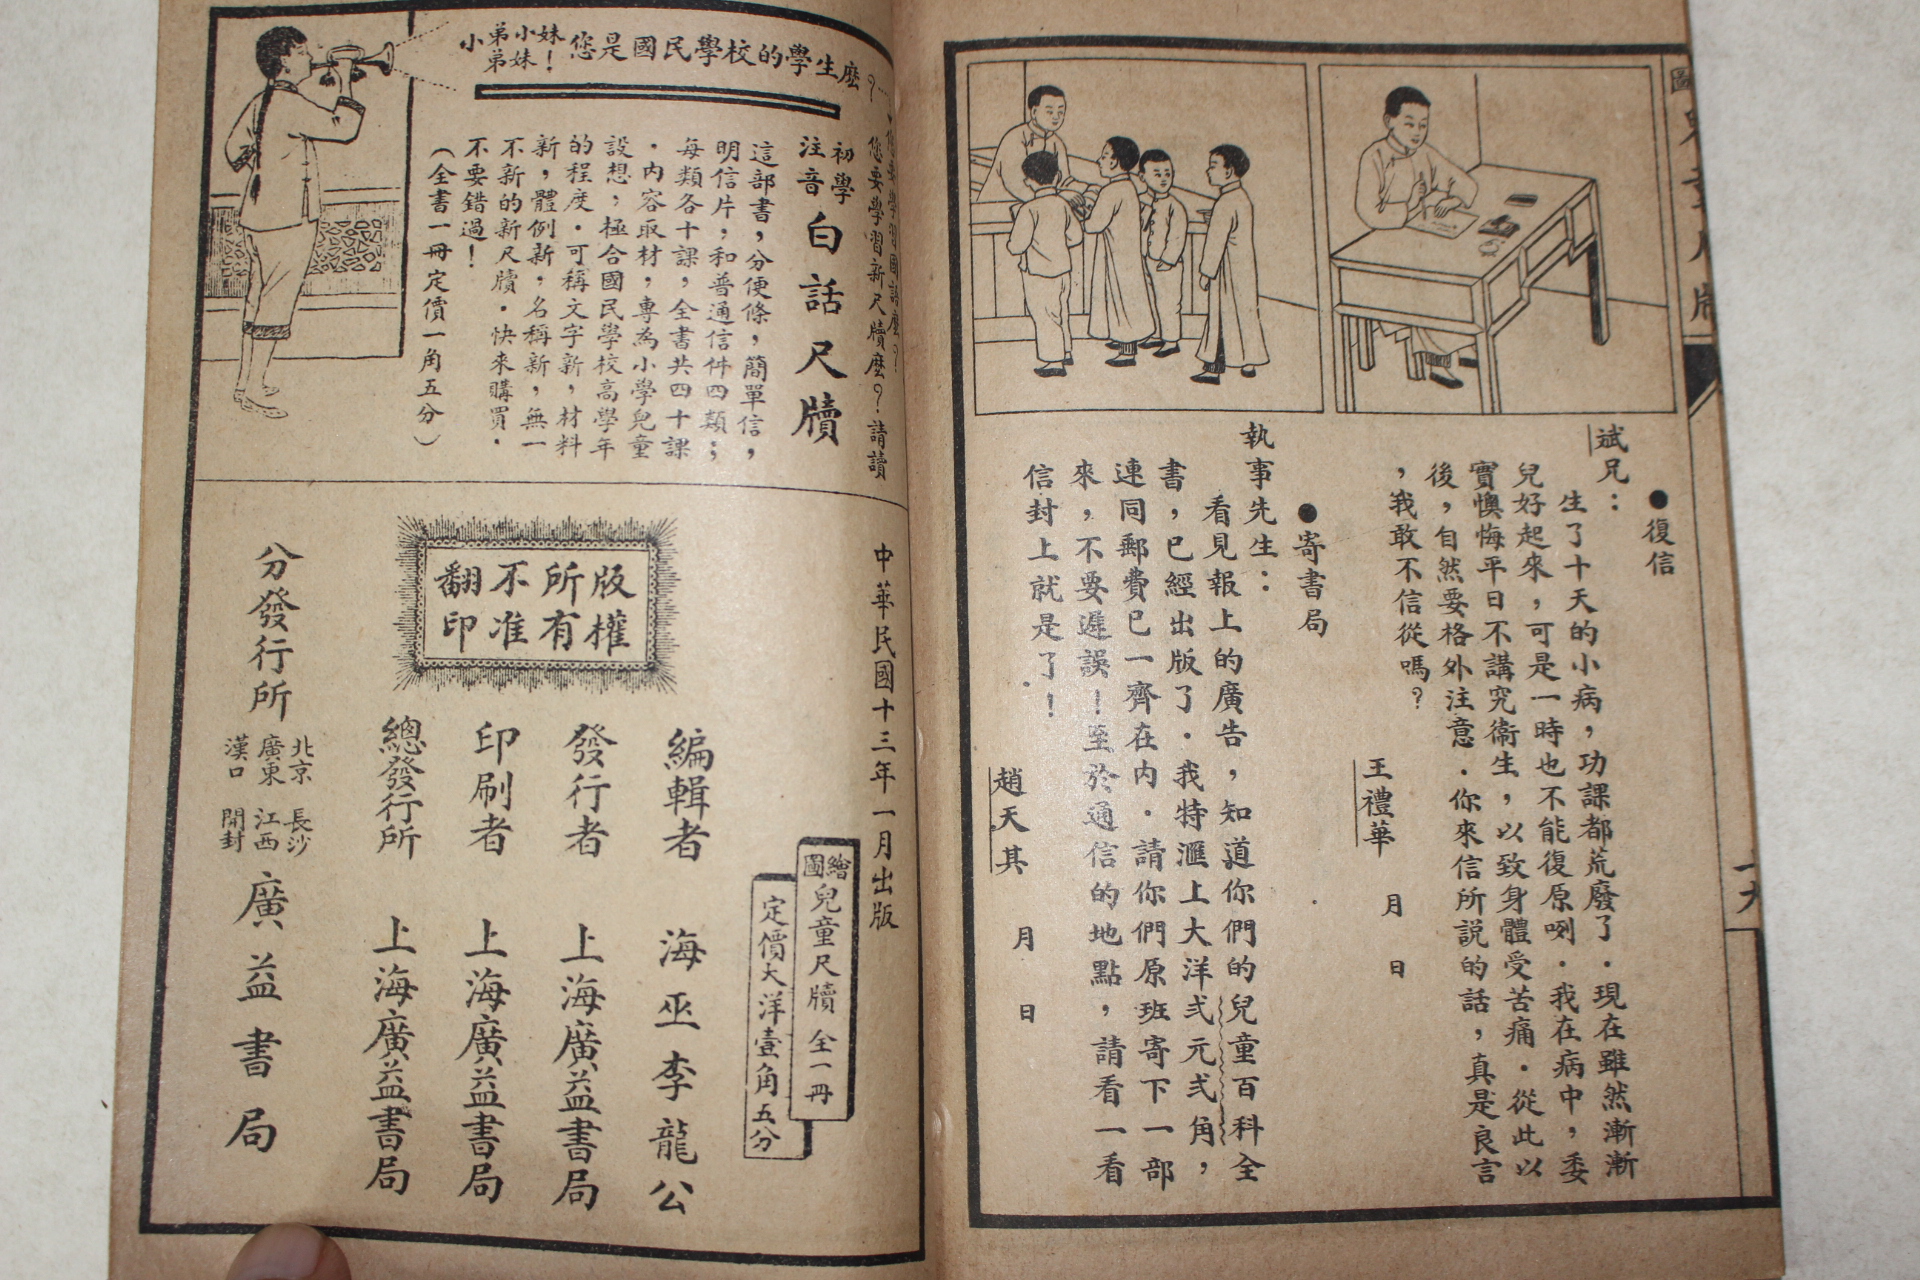 ●復信
斌兄：
生了十天的小病，功課都荒廢了．現在雖然漸漸
兒好起來，可是一時也不能復原咧．我在病中，委
實懊悔平日不講究衞生，以致身體受苦痛．從此以
後，自然要格外注意．你來信所説的話，真是良言
，我敢不信從嗎？
王禮華　月　日
●寄書局
執事先生：
看見報上的廣告，知道你們的兒童百科全
書，已經出版了．我特滙上大洋弍元弍角，
連同郵費已一齊在内．請你們原班寄下一部
來，不要遲誤！至於通信的地點，請看一看
信封上就是了！
趙天其　月　日
一九
小弟弟小妹妹！您是國民學校的學生麽？
您要學習國語麽？
您要學習新尺牘麽？請讀
初學注音白話尺牘
這部書，分便條，簡單信，
明信片，和普通信件四類；
每類各十課，全書共四十課
．内容取材，專為小學兒童
設想，極合國民學校高學年
的程度．可稱文字新，材料
新，體例新，名稱新，無一
不新的新尺牘．快來購買．
不要錯過！
（全書一冊定價一角五分）
中華民國十三年一月出版
繪圖兒童尺牘全一冊
定價大洋壹角五分
版權所有不准翻印
編輯者　海巫李龍公
發行者　上海廣益書局
印刷者　上海廣益書局
總發行所　上海廣益書局
分發行所　北京　長沙　廣東　江西　漢口　開封　廣益書局